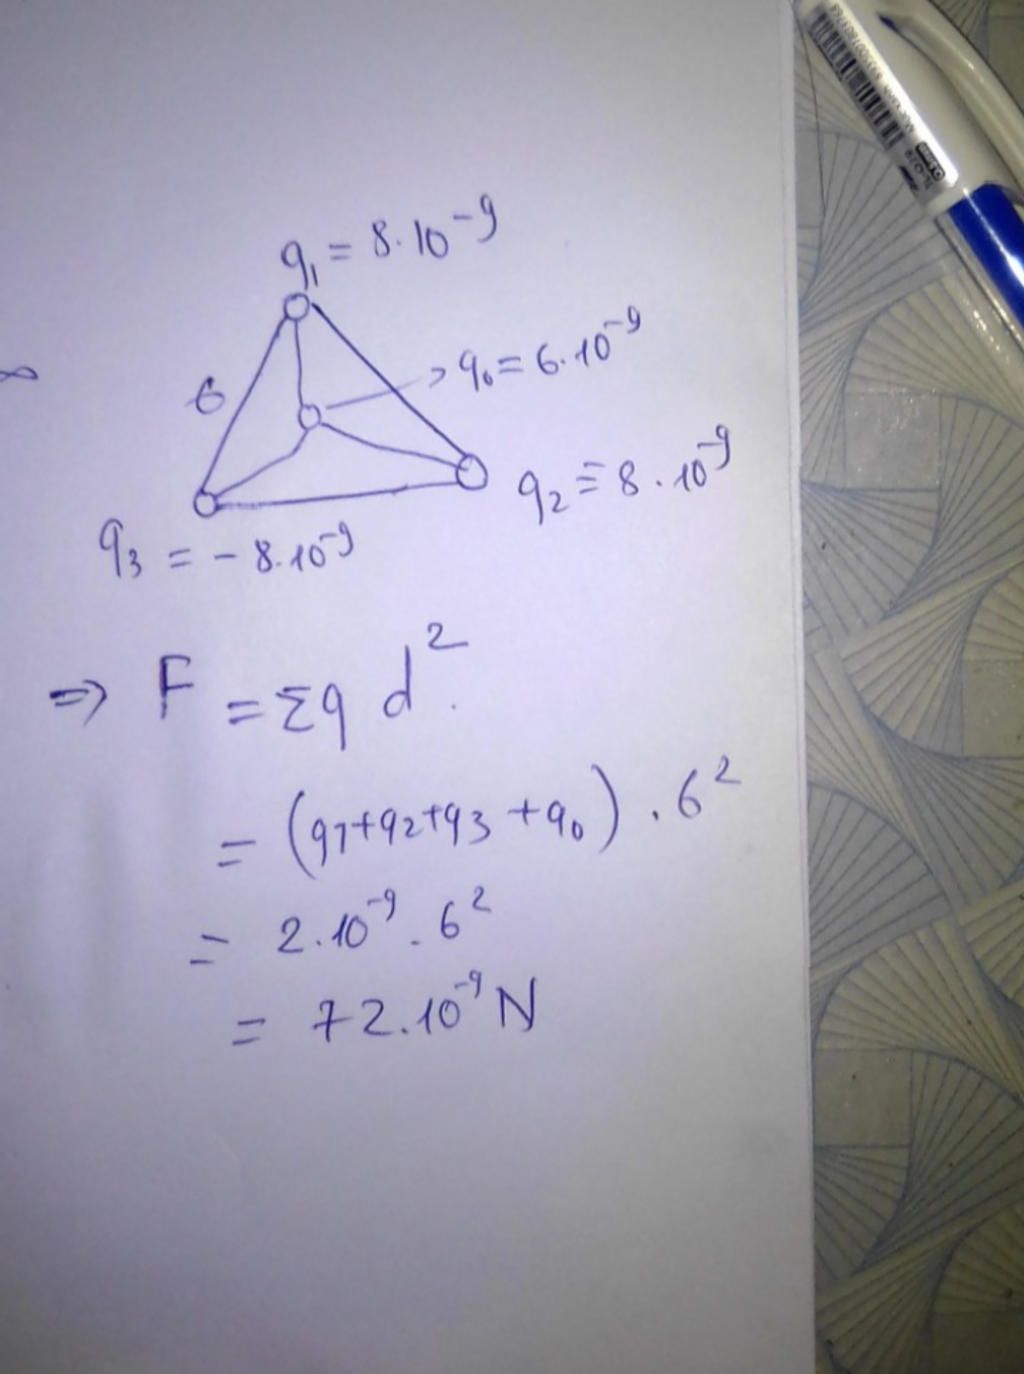 q₁ = 8.10⁻⁹
6
> q₀ = 6.10⁻⁹
q₂ = 8.10⁻⁹
q₃ = -8.10⁻⁹
⇒ F = Σq d².
= (q1+q2+q3+q₀).6²
= 2.10⁻⁹.6²
= 72.10⁻⁹ N